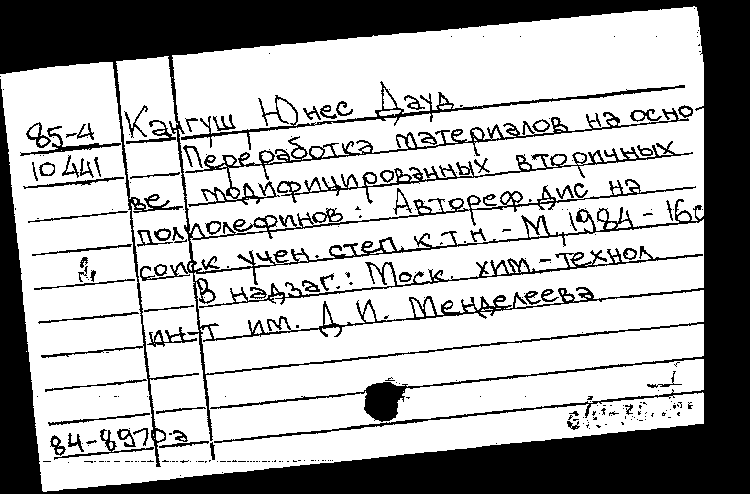 85-4 Кангуш Юнес Дауд.
10441 Переработка материалов на осно-
ве модифицированных вторичных
полиолефинов: Автореф. дис на
соиск. учен. степ. к.т.н. - М., 1984 - 16с
В надзаг.: Моск. хим.-технол.
ин-т им. Д.И. Менделеева.
84-8970а